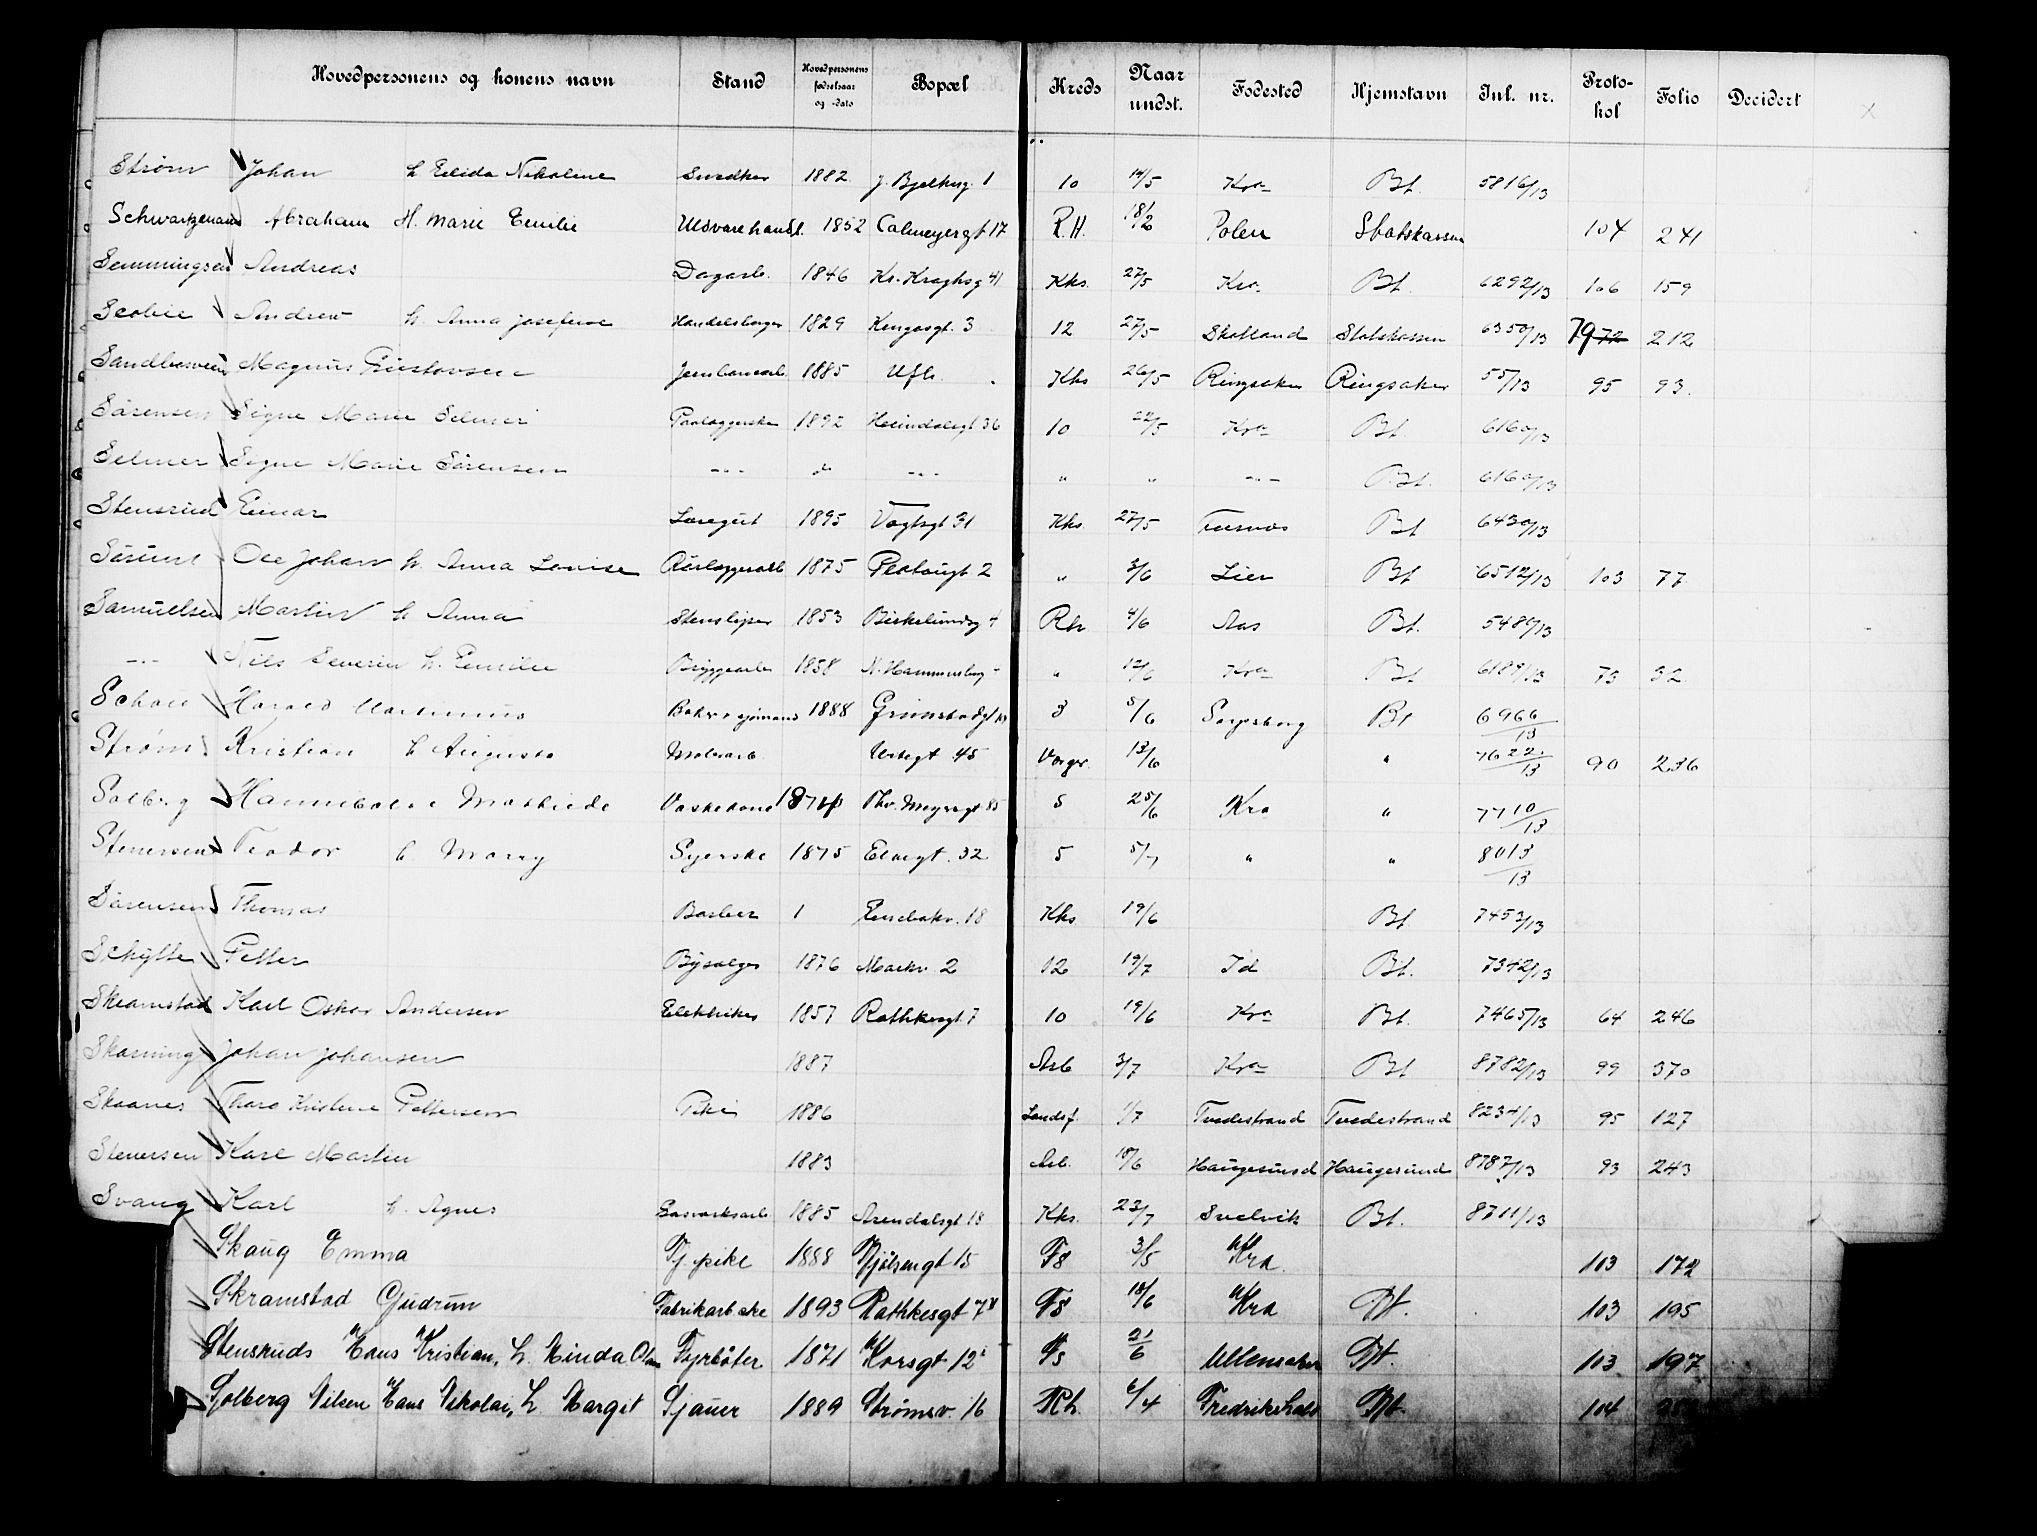 Hovedpersonens og konens navn Stand Hovedpersonens fødselsaar og -dato Bopæl Kreds Naar undst. Fødested Hjemstavn Inl. nr. Proto-kol Folio Decidert
Strøm Johan h Elida Nikoline Snedker 1882 J. Bjelkesg. 1 10 14/5 Kra Bt. 5816/13
Schwartzmann Abraham H. Marie Emilie Uldvarehandl. 1852 Calmeyergt 17 R.H. 18/2 Polen Statskassen 104 241
Semmingsen Andreas Dagarb. 1846 Kr. Kroghsg 41 Kks. 27/5 Kra Bt. 6292/13 106 159
Scobie Andrew h. Anna Josefine Handelsborger 1829 Kongosgt. 3 12 27/5 Skotland Statskassen 6350/13 79 72 212
Magnus Gustavsen Jernbanearb. 1885 Ufh. Kks 26/5 Ringsaker Ringsaker 55/13 95 93.
Sørensen Signe Marie Selmer Paalæggerske 1892 Heimdalsgt 36 10 22/5 Kra Bt. 6160/13
Selmer Signe Marie Sørensen -"- do -"- " " -"- Bt. 6160/13
Stensrud Einar Løsegut 1895 Vogtsgt 31 Kks. 27/5 Bt 6430/13
Sørum Ole Johan h. Anna Lovise Rørlæggerarb 1875 Platougt 2 " 3/6 Lier Bt 6512/13 103 77
Samuelsen Martin h Anna Stensliper 1853 Birkelundsg 4 Rh 4/6 Aas Bt. 5486/13
-"- Nils Severin h. Emilie Bryggearb 1858 N. Hammersbg " 12/6 Kra Bt 6189/13 73 32
Schou Harald Martinius Baker & sjømand 1888 Grimstadgt 3 5/6 Sarpsborg Bt 6966/13
Strøm Kristian h Augusta Malerarb. Urtegt 45 Vorger. 13/6 " 7622/13 90 236
Solberg Hannibaline Mathilde Vaskekone Thv. Meyersgt 5 25/6 Kra " 7710/13
Stenersen Teodor h Marry Syerske 1875 Elvegt. 32 5 5/7 " " 8013/13
Sørensen Thomas Barber 1 Enebakv. 18 Kks 19/6 Bt 7453/13
Schytte Petter Bysælger 1876 Markv. 2 12 19/7 Id Bt. 7342/13
Skramstad Karl Oskar Andersen Elektriker 1857 Rathkesgt. 7 10 19/6 Kra Bt. 7465/13 64 246
Skarning Johan Johansen 1887 Arb 3/7 Kra Bt 8782/13 99 370
Skaanes Thara Kristine Pettersen Pike 1886 Landsf. 1/7 Tvedestrand Tvedestrand 8234/13 95 127
Stenersen Karl Martin 1883 Arb. 18/6 Haugesund Haugesund 8787/13 93 243
Svang Karl h. Agnes Gasværksarb 1885 Arendalsgt. 18 Kks. 23/7 Svelvik Bt. 8711/13
Skaug Emma Tj. pike 1888 Hjølsengt 15 F8 31/5 Kra. 103 172
Skramstad Gudrun Fabrikarb.ske 1893 Rathkesgt 7 F8 18/6 Kra Bt. 103 195
Stensruds Hans Kristian, h. Minda Fyrbøter 1871 Korsgt 12 21/6 Ullensaker Bt. 103 197
Solberg Nilsen Hans Nikolai, h Margit Sjauer 1889 Strømsv. 16 Rh. 6/4 Fredrikshald Bt. 104